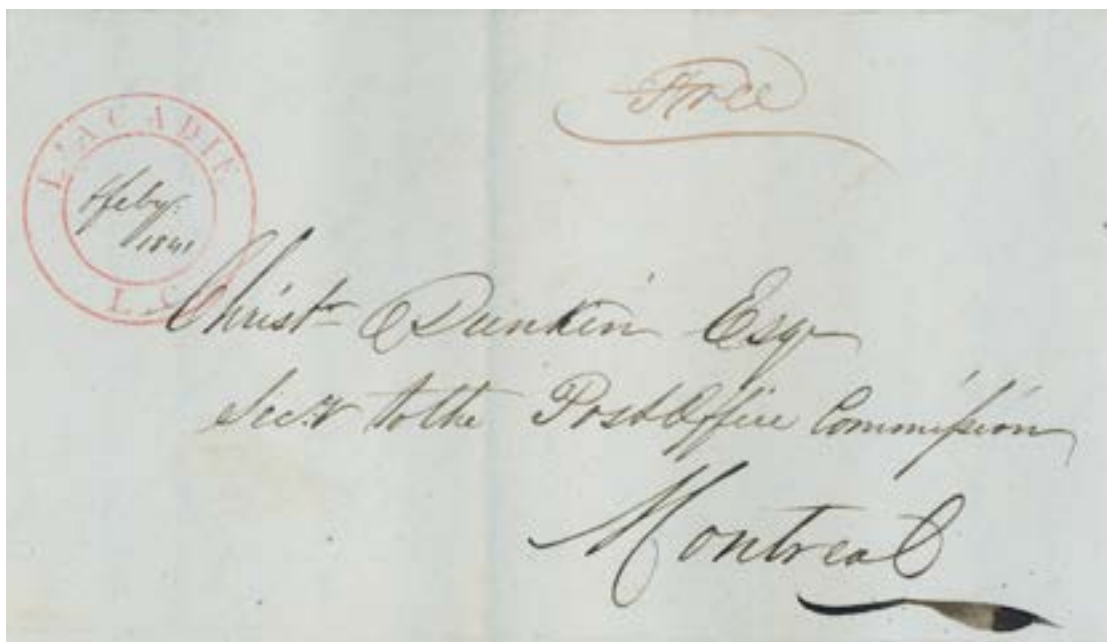 Free
L'ACADIE
feby.
1841
L.C.
Christr Dunkin Esqr
Secry to the Post Office Commission
Montreal